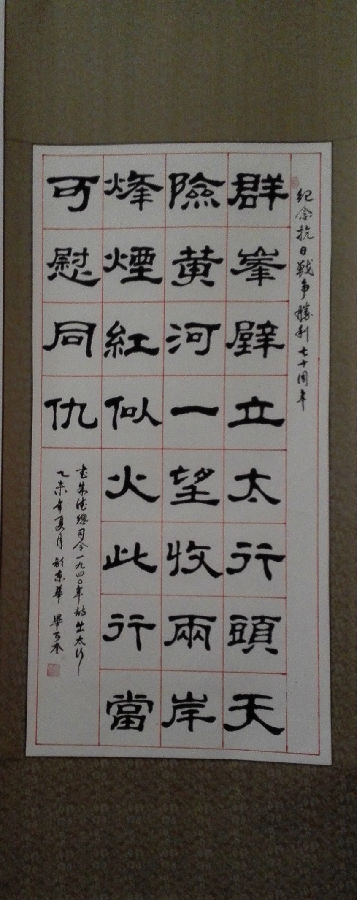 纪念抗日战争胜利七十周年
群峯壁立太行頭天
險黄河一望收兩岸
烽煙紅似火此行當
可慰同仇
书朱德總司令一九四〇年的出太行
乙未年夏月於京華